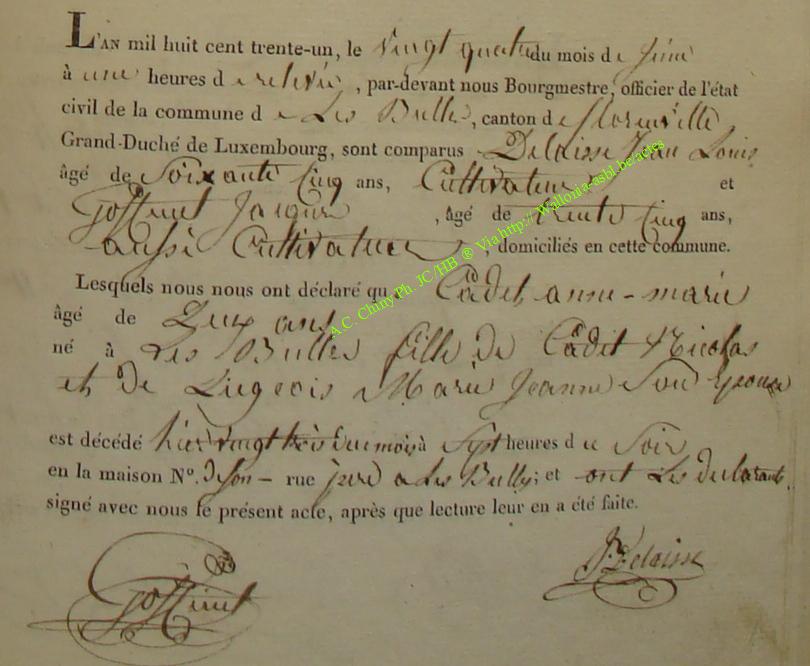 L'AN mil huit cent trente-un, le vingt quatre du mois de juin
à une heures de relevée, par-devant nous Bourgmestre, officier de l'état
civil de la commune de Les Bulles, canton de florenville
Grand-Duché de Luxembourg, sont comparus Delaisse Jean Louis
âgé de Soixante Cinq ans, Cultivateur et
Goffinet Jacques, âgé de trente Cinq ans,
aussi Cultivateur, domiciliés en cette commune.
Lesquels nous nous ont déclaré que Cadet anne-marie
âgé de Deux ans
né à Les Bulles fille de Cadet Nicolas
et de Liegeois Marie Jeanne Son Epouse
est décédé hier vingt trois du mois à Sept heures de Soir
en la maison N°. de son - rue père a Les Bulles; et ont Les declarants
signé avec nous le présent acte, après que lecture leur en a été faite.
Goffinet
J. Delaisse
A.C. Chiny Ph. JC/HB ® Via http://Wallonia-asbl.be/actes